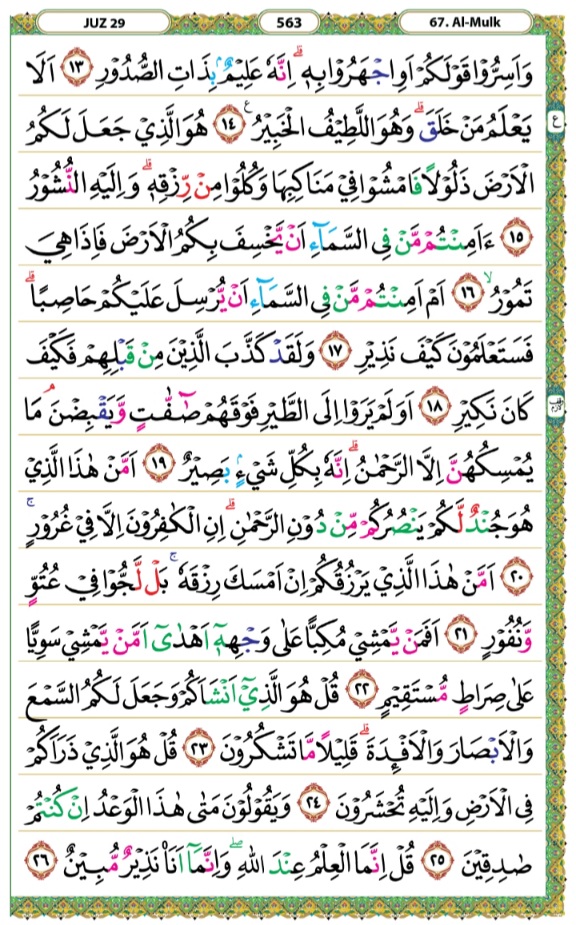 JUZ 29
563
67. Al-Mulk
وَاَسِرُّوْا قَوْلَكُمْ اَوِاجْهَرُوْا بِهٖۗ اِنَّهٗ عَلِيْمٌۢ بِذَاتِ الصُّدُوْرِ ١٣ اَلَا
يَعْلَمُ مَنْ خَلَقَۗ وَهُوَ اللَّطِيْفُ الْخَبِيْرُࣖ ١٤ هُوَ الَّذِيْ جَعَلَ لَكُمُ
الْاَرْضَ ذَلُوْلًا فَامْشُوْا فِيْ مَنَاكِبِهَا وَكُلُوْا مِنْ رِّزْقِهٖۗ وَاِلَيْهِ النُّشُوْرُ
١٥ ءَاَمِنْتُمْ مَّنْ فِى السَّمَاۤءِ اَنْ يَّخْسِفَ بِكُمُ الْاَرْضَ فَاِذَا هِيَ
تَمُوْرُۙ ١٦ اَمْ اَمِنْتُمْ مَّنْ فِى السَّمَاۤءِ اَنْ يُّرْسِلَ عَلَيْكُمْ حَاصِبًاۗ
فَسَتَعْلَمُوْنَ كَيْفَ نَذِيْرِ ١٧ وَلَقَدْ كَذَّبَ الَّذِيْنَ مِنْ قَبْلِهِمْ فَكَيْفَ
كَانَ نَكِيْرِ ١٨ اَوَلَمْ يَرَوْا اِلَى الطَّيْرِ فَوْقَهُمْ صٰۤفّٰتٍ وَّيَقْبِضْنَۘ مَا
يُمْسِكُهُنَّ اِلَّا الرَّحْمٰنُۗ اِنَّهٗ بِكُلِّ شَيْءٍۢ بَصِيْرٌ ١٩ اَمَّنْ هٰذَا الَّذِيْ
هُوَ جُنْدٌ لَّكُمْ يَنْصُرُكُمْ مِّنْ دُوْنِ الرَّحْمٰنِۗ اِنِ الْكٰفِرُوْنَ اِلَّا فِيْ غُرُوْرٍۚ
٢٠ اَمَّنْ هٰذَا الَّذِيْ يَرْزُقُكُمْ اِنْ اَمْسَكَ رِزْقَهٗۚ بَلْ لَّجُّوْا فِيْ عُتُوٍّ
وَّنُفُوْرٍ ٢١ اَفَمَنْ يَّمْشِيْ مُكِبًّا عَلٰى وَجْهِهٖٓ اَهْدٰىٓ اَمَّنْ يَّمْشِيْ سَوِيًّا
عَلٰى صِرَاطٍ مُّسْتَقِيْمٍ ٢٢ قُلْ هُوَ الَّذِيْٓ اَنْشَاَكُمْ وَجَعَلَ لَكُمُ السَّمْعَ
وَالْاَبْصَارَ وَالْاَفْـِٕدَةَۗ قَلِيْلًا مَّا تَشْكُرُوْنَ ٢٣ قُلْ هُوَ الَّذِيْ ذَرَاَكُمْ
فِى الْاَرْضِ وَاِلَيْهِ تُحْشَرُوْنَ ٢٤ وَيَقُوْلُوْنَ مَتٰى هٰذَا الْوَعْدُ اِنْ كُنْتُمْ
صٰدِقِيْنَ ٢٥ قُلْ اِنَّمَا الْعِلْمُ عِنْدَ اللّٰهِۖ وَاِنَّمَآ اَنَا۠ نَذِيْرٌ مُّبِيْنٌ ٢٦
ع